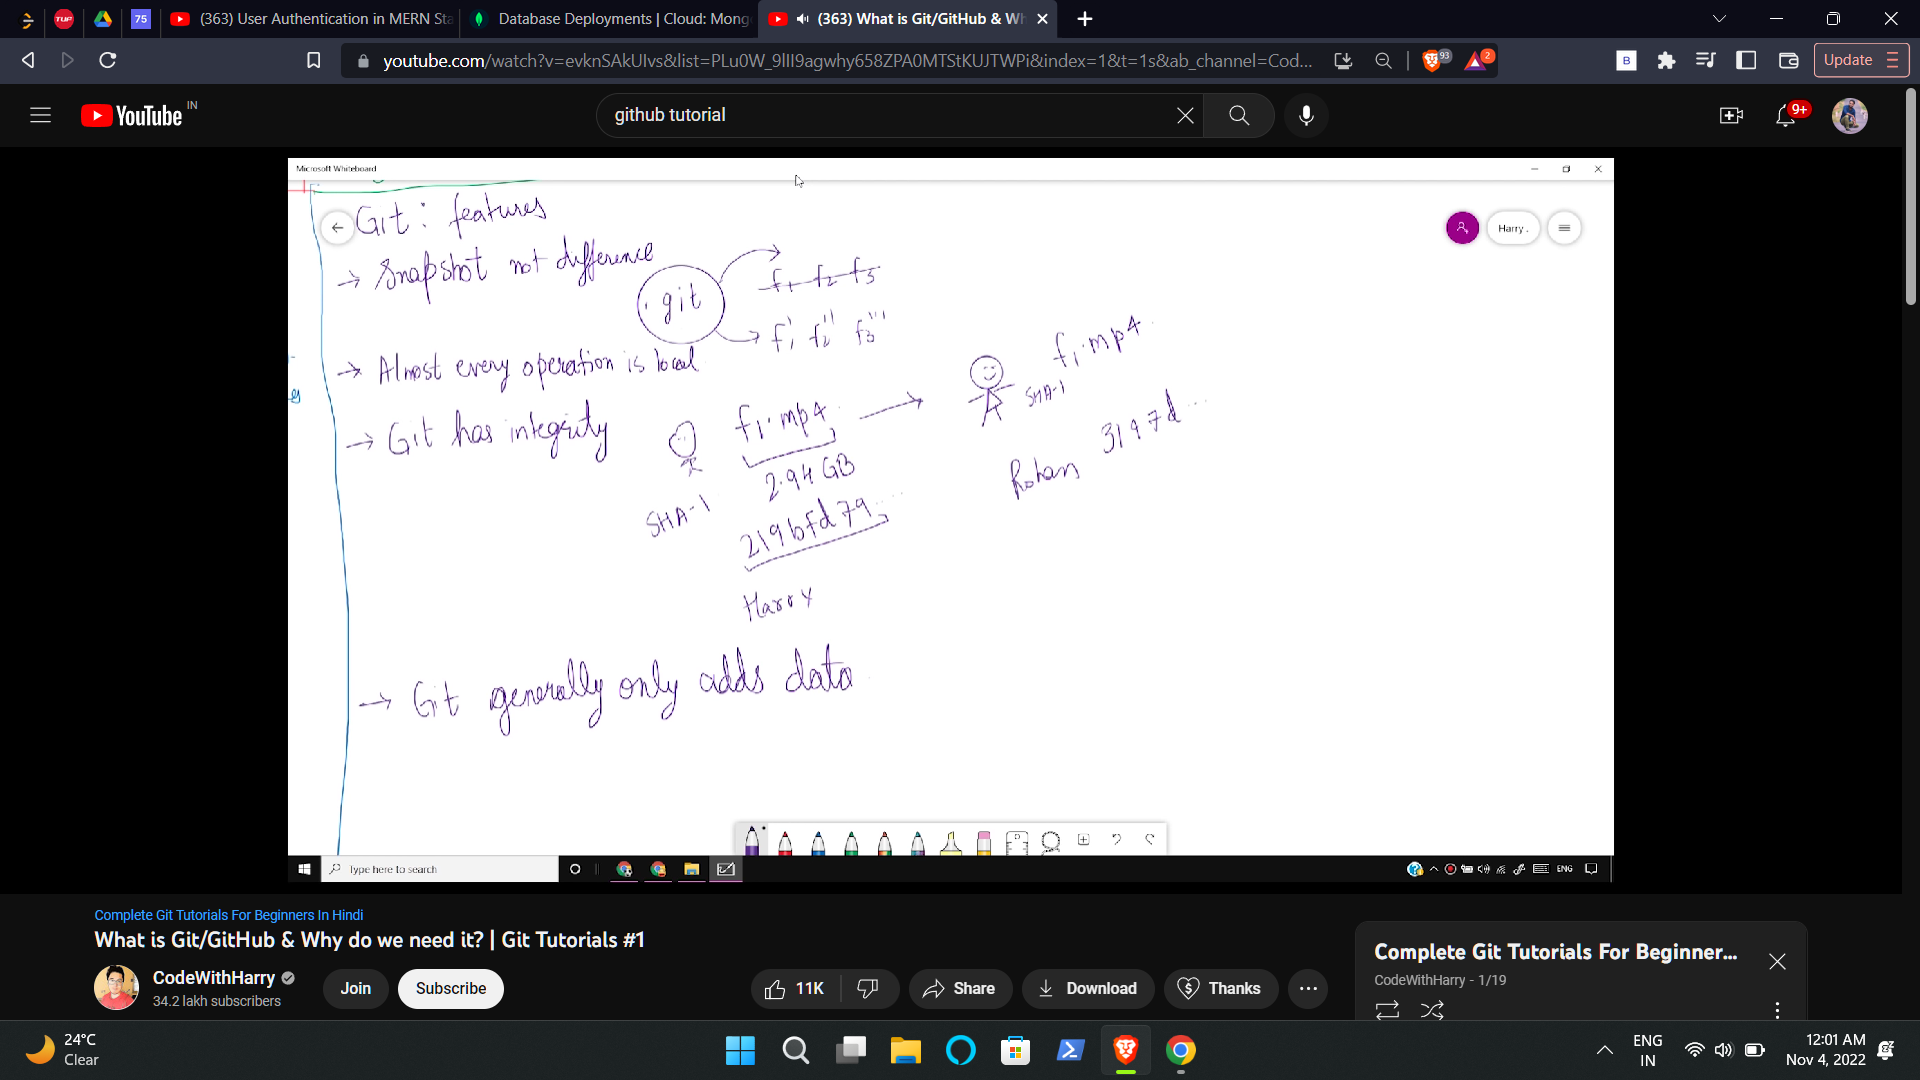 75
(363) User Authentication in MERN Sta
Database Deployments | Cloud: Mong
(363) What is Git/GitHub & Wh
youtube.com/watch?v=evknSAkUIvs&list=PLu0W_9lII9agwhy658ZPA0MTStKUJTWPi&index=1&t=1s&ab_channel=Cod...
93
2
B
Update
YouTube IN
github tutorial
9+
Microsoft Whiteboard
Git: features
Harry .
→ Snapshot not difference
git
f1 f2 f3
f1' f2'' f3'''
→ Almost every operation is local
f1.mp4
SHA-1
→ Git has integrity
f1.mp4
3197d...
2.94 GB
Rohan
SHA-1
219bfd79...
Harry
→ Git generally only adds data
Type here to search
ENG
Complete Git Tutorials For Beginners In Hindi
What is Git/GitHub & Why do we need it? | Git Tutorials #1
CodeWithHarry
34.2 lakh subscribers
Join
Subscribe
11K
Share
Download
Thanks
Complete Git Tutorials For Beginner...
CodeWithHarry - 1/19
24°C
Clear
ENG
IN
12:01 AM
Nov 4, 2022